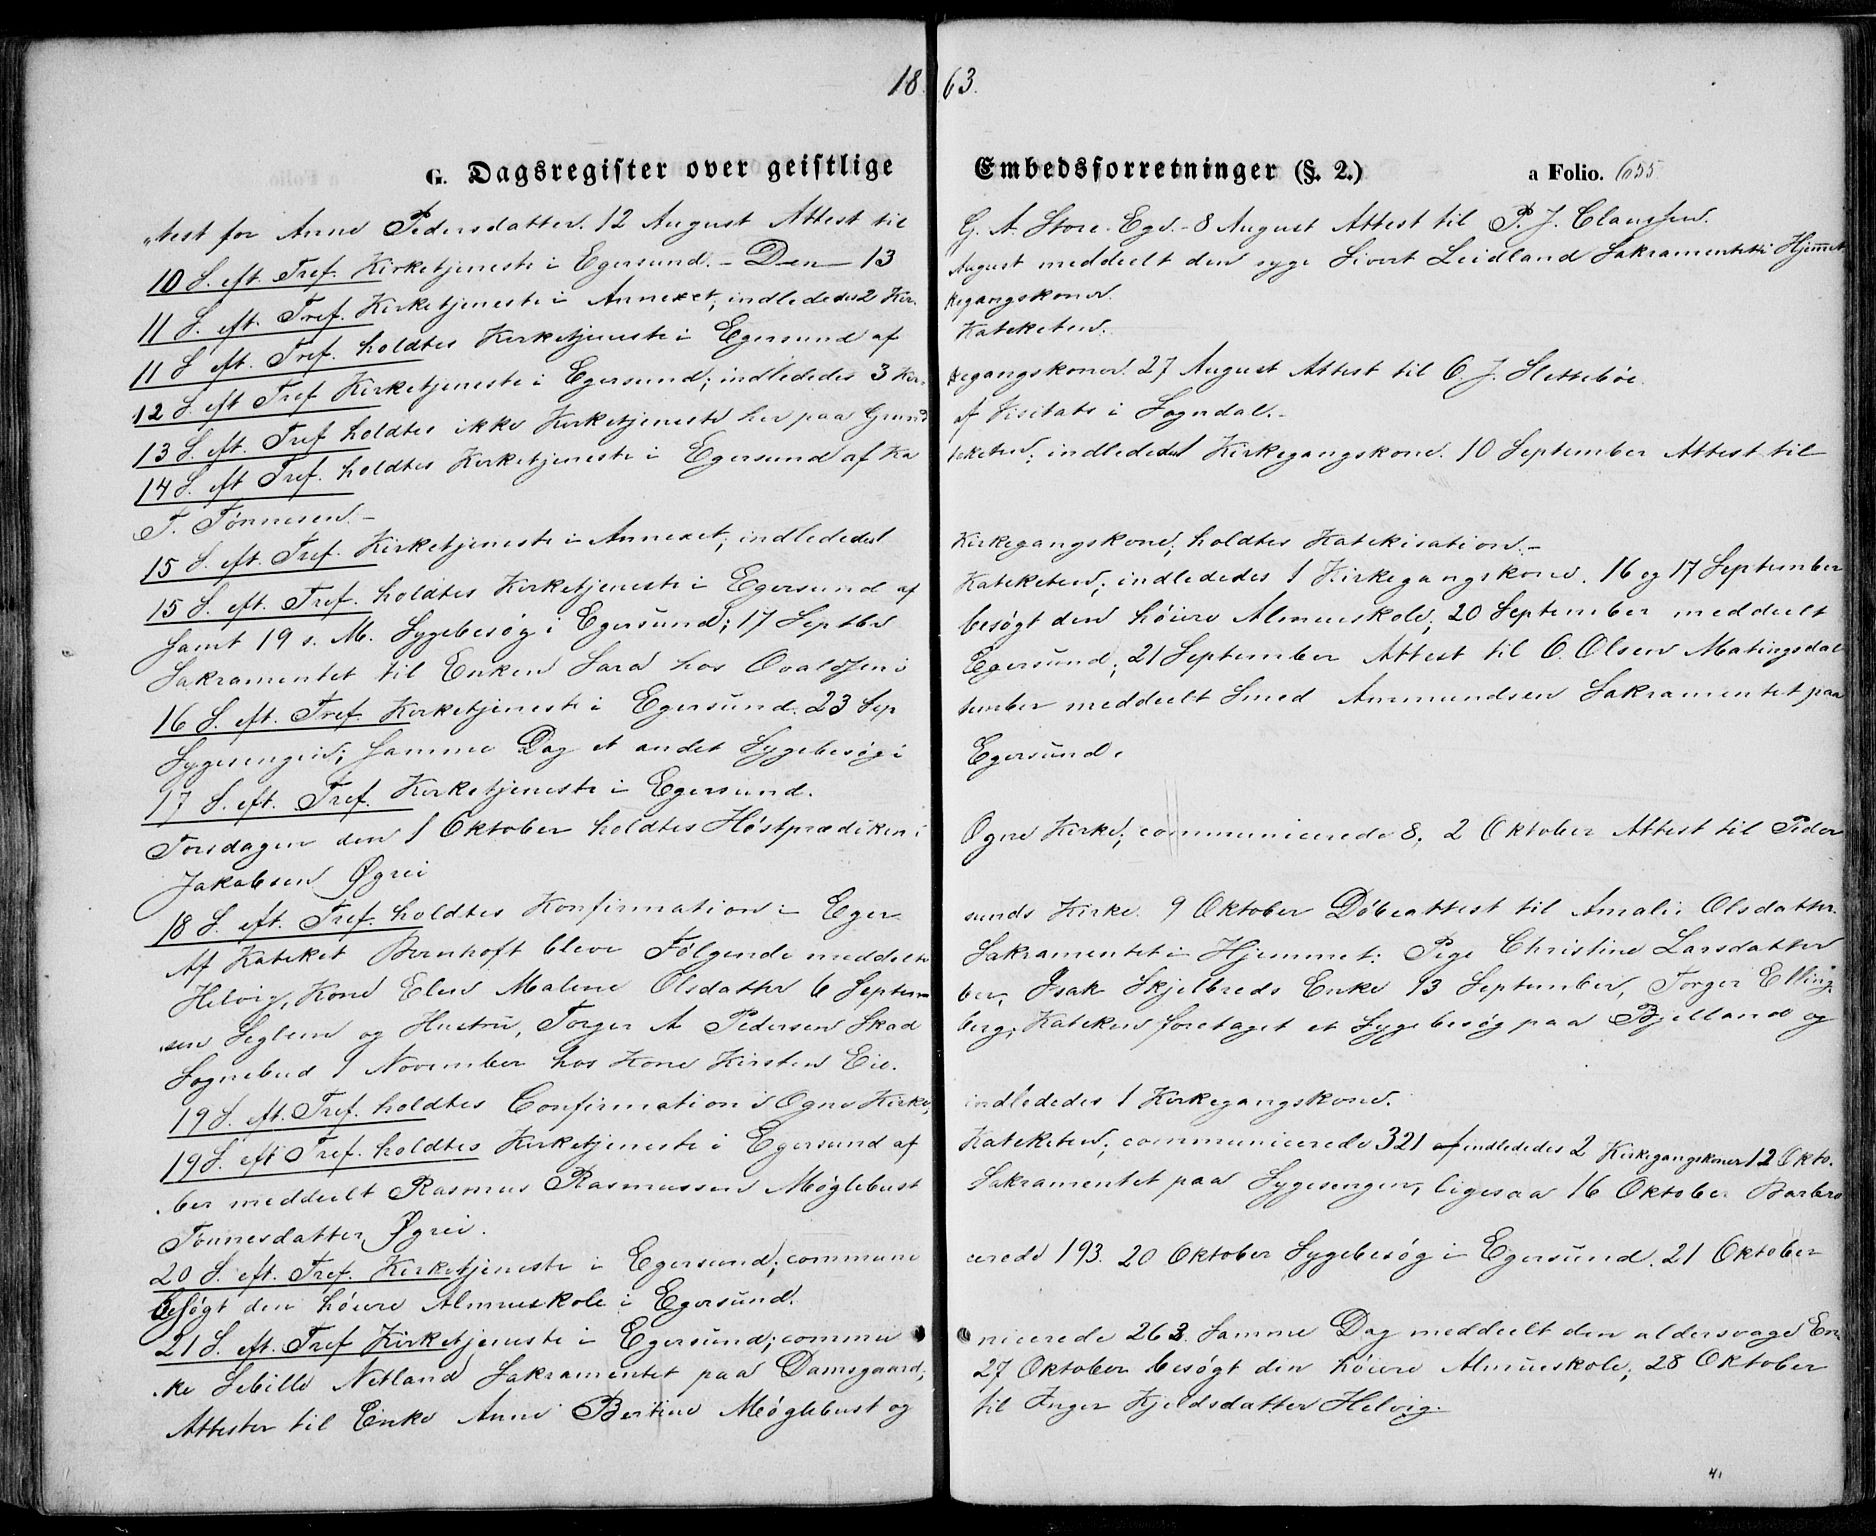 18 63.
G. Dagsregister over geistlige Embedsforretninger (§. 2.) a Folio. 655
"test for Anne Pedersdatter. 12 August Attest til G. A. Store. Egd. - 8 August Attest til P. J. Claussen.
10 S. eft. Tref. Kirketjeneste i Egersund. - Den 13 August meddeelt den syge Sivert Leidland Sakramentet i Hjemmet
11 S. eft. Tref. Kirketjeneste i Annexet; indlededes 2 Kir- kegangskoner.
11 S. eft. Tref. holdtes Kirketjeneste i Egersund af Kateketen.
12 S. eft Tref Kirketjeneste i Egersund; indlededes 3 Kir- kegangskoner. 27 August Attest til O. J. Hettebøe.
13 S. eft. Tref holdtes ikke Kirketjeneste her paa Grund af Visitats i Sogndal. -
14 S. eft Tref. holdtes Kirketjeneste i Egersund af Ka teketen; indlededes 1 Kirkegangskone. 10 September Attest til
T. Tönnesen. -
15 S. eft. Tref. Kirketjeneste i Annexet; indlededes 1 Kirkegangskone; holdtes Katekisation. -
15 S. eft. Tref. holdtes Kirketjeneste i Egersund af Kateketen; indlededes 1 Kirkegangskone. 16 og 17 September
samt 19 s. M. Sygebesøg i Egersund; 17 Septbr besøgt den høiere Almueskole; 20 September meddeelt
Sakramentet til Enken Sara hos Ovaldsen i Egersund; 21 September Attest til O. Olsen Matingsdal
16 S. eft. Tref. Kirketjeneste i Egersund. 23 Sep tember meddeelt Smed Ammundsen Sakramentet paa
Sygesengen; samme Dag et andet Sygebesøg i Egersund.
17 S. eft. Tref. Kirketjeneste i Egersund.
Torsdagen den 1 Oktober holdtes Høstprædiken i Ogne Kirke; communicerede 8. 2 Oktober Attest til Peder
Jakobsen Øgrei
18 S. eft. Tref. holdtes Konfirmation i Eger sunds Kirke. 9 Oktober Døbeattest til Amalie Olsdatter.
Af Kateket Bernhoft bleve Følgende meddeelte Sakramentet i Hjemmet: Pige Christine Larsdatter
Helvig, Kone Elen Malene Olsdatter 6 Septem ber, Isak Skjelbreds Enke 13 September, Torger Elling
sen Seglem og Hustru, Torger A Pedersen Skad berg; Kateketen foretaget et Sygebesøg paa Bjelland og
Sognebud 1 November hos Kone Kirsten Eie.
19 S. eft. Tref. holdtes Confirmation i Ogne Kirke, indlededes 1 Kirkegangskone.
19 S. eft Tref. holdtes Kirketjeneste i Egersund af Kateketen; communicerede 321 indlededes 2 Kirkegangskoner 12 Okto.
ber meddeelt Rasmus Rasmussen Møglebust Sakramentet paa Sygesengen, ligesaa 16 Oktober Barbro
Tönnesdatter Øgrei.
20 S. eft. Tref. Kirketjeneste i Egersund; communi cerede 193. 20 Oktober Sygebesøg i Egersund. 21 Oktober
besøgt den høiere Almueskole i Egersund.
21 S. eft. Tref Kirketjeneste i Egersund; commu nicerede 263. Samme Dag meddeelt den aldersvage En-
ke Sebille Netland Sakramentet paa Damsgaard; 27 Oktober besøgt den høiere Almueskole; 28 Oktober
Attester til Enke Anne Bertine Møglebust og til Inger Kjeldsdatter Helvig.
41